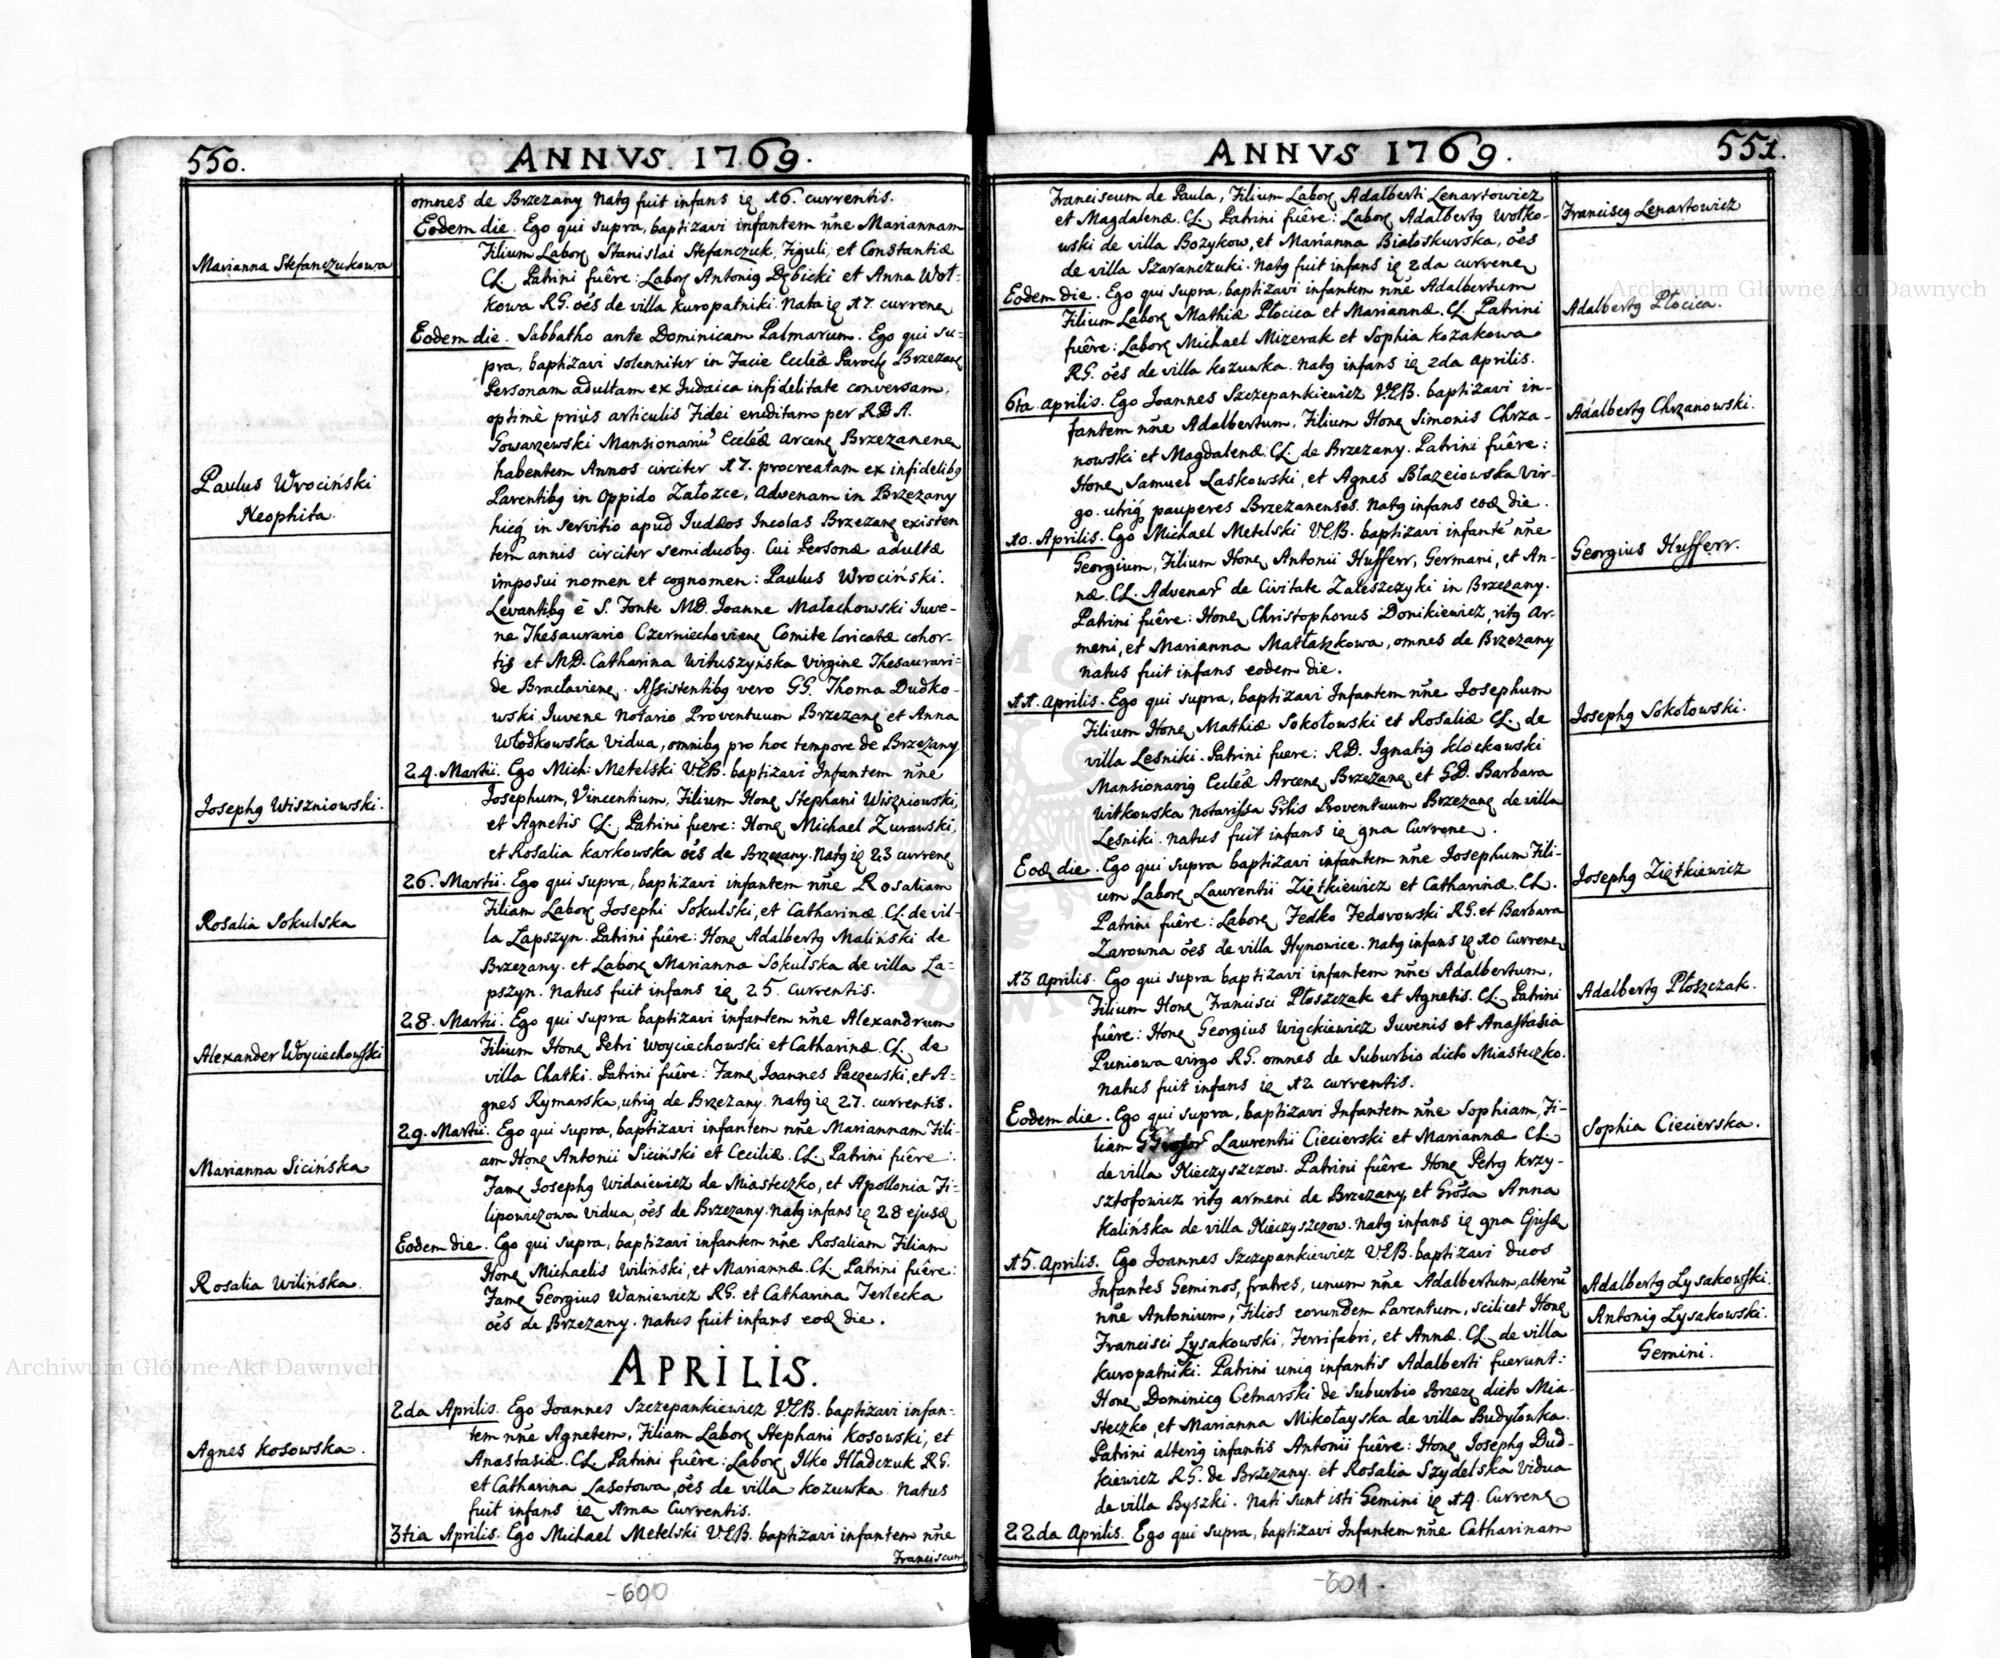 550.
ANNVS 1769.
omnes de Brzezany Natꝯ fuit infans ię 16. currentis.
Marianna Stefanczukowa
Eodem die. Ego qui supra, baptizavi infantem nn̄e Mariannam
Filium Laborꝫ Stanislai Stefanczuk, Figuli, et Constantiæ
CL. Patrini fuêre: Laborꝫ Antoniꝯ Dębicki et Anna Woł-
kowa RG. oēs de villa Kuropatniki. Nata ię 17. currenꝫ
Eodem die. Sabbatho ante Dominicam Palmarum. Ego qui su-
pra, baptizavi solenniter in Facie Eccl̄æ Paroch Brzezanꝫ
Personam adultam ex Judaica infidelitate conversam,
optimè priùs articulis Fidei eruditam per RDA.
Gowarzewski Mansionariū Eccl̄æ Arcenꝫ Brzezanenꝫ
habentem Annos circiter 17. procreatam ex infidelibꝯ
Paulus Wrociński
Neophita.
Parentibꝯ in Oppido Załozce, Advenam in Brzezany
hicꝫ in servitio apud Judæos Incolas Brzezanꝫ existen
tem annis circiter semiduobꝯ. Cui Personæ adultæ
imposui nomen et cognomen: Paulus Wrociński.
Levantibꝯ è S. Fonte MD. Joanne Małachowski Juve-
ne Thesaurario Czerniechovienꝫ Comite loricatæ cohor-
tis et MD. Catharina Wituszyńska Virgine Thesaurari-
de Bracłavienꝫ. Assistentibꝯ vero GG. Thoma Dudko-
wski Juvene Notario Proventuum Brzezanꝫ et Anna
Włodkowska Vidua, omnibꝯ pro hoc tempore de Brzezany
Josephꝯ Wiszniowski.
24. Martii. Ego Mich: Metelski VEB. baptizavi Infantem nn̄e
Josephum, Vincentium, Filium Honꝫ Stephani Wiszniowski,
et Agnetis CL. Patrini fuere: Honꝫ Michael Zurawski,
et Rosalia Karkowska oēs de Brzezany. Natꝯ ię 23 currenꝫ
Rosalia Sokulska
26. Martii. Ego qui supra, baptizavi infantem nn̄e Rosaliam
Filiam Laborꝫ Josephi Sokulski, et Catharinæ. CL. de vil-
la Łapszyn. Patrini fuêre: Honꝫ Adalbertꝯ Maliński de
Brzezany. et Laborꝫ Marianna Sokulska de villa La-
pszyn. Natus fuit infans ię 25. currentis.
Alexander Woyciechowski
28. Martii. Ego qui supra baptizavi infantem nn̄e Alexandrum
Filium Honꝫ Petri Woyciechowski et Catharinæ. CL. de
villa Chatki. Patrini fuêre: Famꝫ Joannes Paczewski, et A-
gnes Rymarska, utriꝗ de Brzezany. Natꝯ ię 27. currentis.
Marianna Sicińska
29. Martii. Ego qui supra, baptizavi infantem nn̄e Mariannam Fili-
am Honꝫ Antonii Siciński et Ceciliæ. CL. Patrini fuêre:
Famꝫ Josephꝯ Widaiewicz de Miasteczko, et Apollonia Fi-
lipowiczowa Vidua, oēs de Brzezany. Natꝯ infans ię 28 ejusꝺ
Rosalia Wilińska.
Eodem die. Ego qui supra, baptizavi infantem nn̄e Rosaliam Filiam
Honꝫ Michaelis Wiliński, et Mariannæ. CL. Patrini fuêre:
Famꝫ Georgius Waniewicz RG. et Catharina Jerlecka
oēs de Brzezany. Natus fuit infans eoꝺ die.
APRILIS.
Agnes Kosowska.
2da Aprilis. Ego Joannes Szczepankiewicz VEB. baptizavi infan-
tem nn̄e Agnetem, Filiam Laborꝫ Stephani Kosowski, et
Anastasiæ. CL. Patrini fuêre: Laborꝫ Ilko Hładczuk RG.
et Catharina Lasotowa, oēs de villa Kozuwka. Natus
fuit infans ię 1ma Currentis.
3tia Aprilis. Ego Michael Metelski VEB. baptizavi infantem nn̄e
Franciscum
-600
551.
ANNVS 1769.
Franciscꝯ Lenartowicz
Franciscum de Paula, Filium Laborꝫ Adalberti Lenartowicz
et Magdalenæ. CL. Patrini fuêre: Laborꝫ Adalbertꝯ Wołko-
wski de villa Bozykow, et Marianna Białoskurska, oēs
de villa Szaranczuki. Natꝯ fuit infans ię 2da currenꝫ
Adalbertꝯ Płocica.
Eodem die. Ego qui supra, baptizavi infantem nn̄e Adalbertum
Filium Laborꝫ Mathiæ Płocica et Mariannæ. CL. Patrini
fuêre: Laborꝫ Michael Mizerak et Sophia Kozakowa
RG. oēs de villa Kozuwka. Natꝯ infans ię 2da Aprilis.
Adalbertꝯ Chrzanowski.
6ta Aprilis. Ego Joannes Szczepankiewicz VEB. baptizavi in-
fantem nn̄e Adalbertum, Filium Honꝫ Simonis Chrza-
nowski et Magdalenæ. CL. de Brzezany. Patrini fuêre:
Honꝫ Samuel Laskowski, et Agnes Błazeiowska Vir-
go. utriꝗ pauperes Brzezanenses. Natꝯ infans eoꝺ die.
Georgius Hufferr.
10. Aprilis. Ego Michael Metelski VEB. baptizavi infantē nn̄e
Georgium, Filium Honꝫ Antonii Hufferr, Germani, et An-
næ. CL. Advenar̄ de Civitate Zaleszczyki in Brzezany.
Patrini fuêre: Honꝫ Christophorus Donikiewicz, ritꝯ Ar-
meni, et Marianna Matłaszkowa, omnes de Brzezany
natus fuit infans eodem die.
Josephꝯ Sokołowski.
11. Aprilis. Ego qui supra, baptizavi Infantem nn̄e Josephum
Filium Honꝫ Mathiæ Sokołowski et Rosaliæ CL. de
villa Leśniki. Patrini fuere: RD. Ignatiꝯ Klockowski
Mansionariꝯ Eccl̄æ Arcenꝫ Brzezanꝫ et GD. Barbara
Witkowska Notarissa Gr̄lis Proventuum Brzezanꝫ de villa
Leśniki. natus fuit infans ię 9na Currenꝫ.
Josephꝯ Ziętkiewicz
Eoꝺ die. Ego qui supra baptizavi infantem nn̄e Josephum Fili-
um Laborꝫ Laurentii Ziętkiewicz et Catharinæ. CL.
Patrini fuêre: Laborꝫ Fedko Fedorowski RG. et Barbara
Zarowna oēs de villa Hynowice. Natꝯ infans ię 10 Currenꝫ
Adalbertꝯ Płoszczak.
13 Aprilis. Ego qui supra baptizavi infantem nn̄e Adalbertum,
Filium Honꝫ Francisci Płoszczak et Agnetis. CL. Patrini
fuêre: Honꝫ Georgius Więckiewicz Juvenis et Anastasia
Puniowa Virgo RG. omnes de Suburbio dicto Miasteczko.
Natus fuit infans ię 12 currentis.
Sophia Ciecierska.
Eodem die. Ego qui supra, baptizavi Infantem nn̄e Sophiam, Fi-
liam Laurentii Ciecierski et Mariannæ CL.
de villa Mieczyszczow. Patrini fuêre Honꝫ Petrꝯ Krzy-
sztofowicz ritꝯ armeni de Brzezany, et Grōsa Anna
Kalińska de villa Mieczyszczow. Natꝯ infans ię 9na Ejusꝺ
15. Aprilis. Ego Joannes Szczepankiewicz VEB. baptizavi duos
Adalbertꝯ Lysakowski.
Antoniꝯ Lysakowski.
Gemini.
Infantes Geminos, fratres, unum nn̄e Adalbertum, alterū
nn̄e Antonium, Filios eorundem Parentum, scilicet Honꝫ
Francisci Lysakowski, Ferrifabri, et Annæ. CL. de villa
Kuropatniki. Patrini uniꝯ infantis Adalberti fuerunt:
Honꝫ Dominicꝯ Cetnarski de Suburbio Brzezꝫ dicto Mia-
steczko, et Marianna Mikołayska de villa Budyłowka.
Patrini alteriꝯ infantis Antonii fuêre: Honꝫ Josephꝯ Dud-
kiewicz RG. de Brzezany. et Rosalia Szydelska Vidua
de villa Byszki. Nati sunt isti Gemini ię 14. Currenꝫ
22da Aprilis. Ego qui supra, baptizavi Infantem nn̄e Catharinam
-601.
Archiwum Główne Akt Dawnych
Archiwum Główne Akt Dawnych